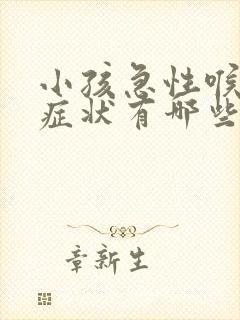 小孩急性喉
症状有哪些
章新生